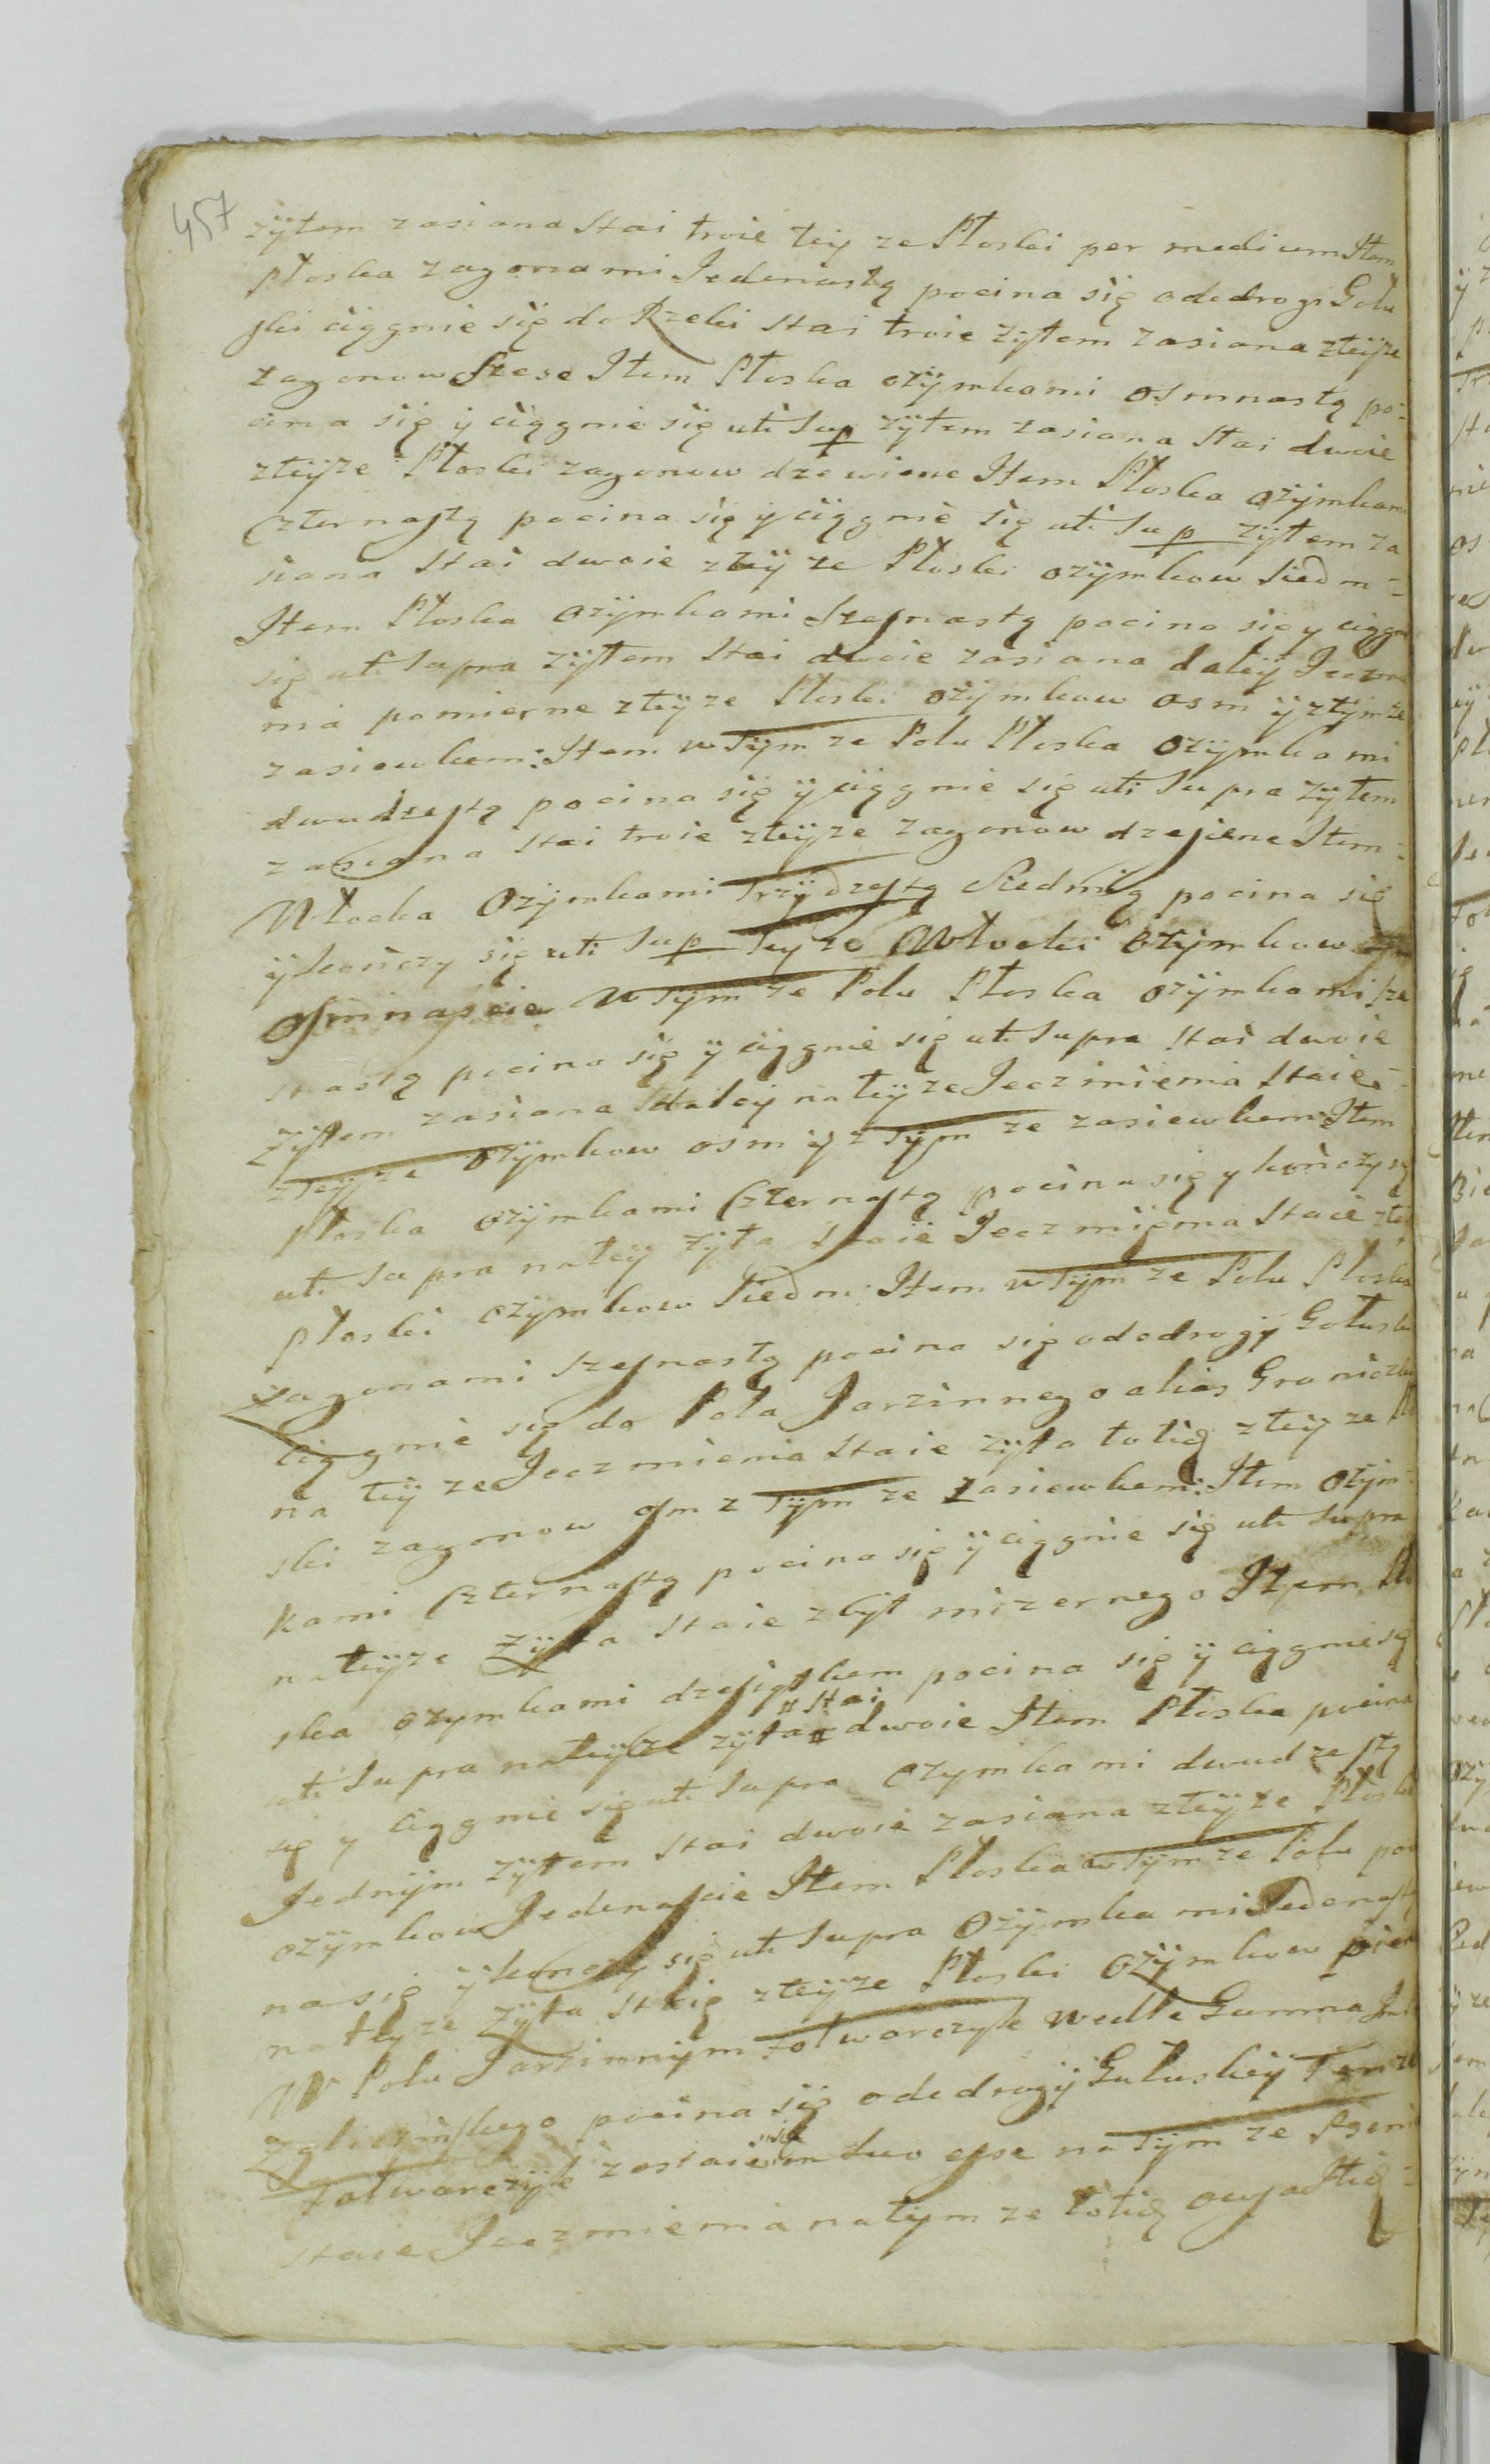 457
zÿtem zasiana Stai troie teÿ ze Płoski per medium Item
Płoska zagonami Jedenastą pocina się odedrogi Gołu
skı ciągnie się do Rzeki Stai troie zÿtem zasiana zteÿze
zagonow Szesc Item Płoska ozÿmkami osmnastą po:
cina się ÿ ciągnie się uti Sup zÿtem zasiana Stai dwoie
zteÿze Płoski zagonow dzewienc Item Płoska ozÿmkami
Czternastą pocina się ÿ ciągnie się uti Sup zÿtem za
siana Stai dwoie zteÿ ze Płoski ozÿmkow Siedm:
Item Płoska ozÿmkami Szesnastą pocina się y ciągni
się uti Supra zÿtem Stai dwoie zasiana daleÿ Jeczmi
ma pomierne zteÿze Płoski ozÿmkow osm ÿ ztÿmze
zasiewkem: Item w Tÿm ze Polu Płoska ozÿmkami
dwudzestą pocina się ÿ ciągnie się uti Supra zÿtem
zasiana Stai troie zteÿze zagonow dzesienc Item:
Włoka Ozÿmkami Trzÿdzestą Siedmią pocina się
ÿ kończy się uti Sup Teÿ ze Włoki Ozÿmkow
osmnascie W Tÿm ze Polu Płoska ozÿmkami sze
snastą pocina się ÿ ciągnie się uti Supra Stai dwoie
Zÿtem zasiana daleÿ nateÿze Jeczmienia Staie
zteÿze ozÿmkow osm ÿ z Tÿm ze zasiewkem: Item
Płoska ozÿmkami Czternastą pocina się y kończy się
uti Supra nateÿ zÿta Staie Jeczmięnia Staie zteÿ
Płoski ozÿmkow Siedm: Item w Tÿm ze Polu Płoska
zagonami szesnastą pocina się odedrogÿ Gołuski
ciągnie się do Pola Jarzinnego alias Graniczki
na teÿ ze Jeczmienia Staie zÿta totiq zteÿ ze Pło
ski zagonow osm z Tÿm ze zasiewkem: Item Ozÿm:
kami Czternastą pocina się ÿ ciągnie się uti Supra
nateÿze Zÿta Staie zbÿt mizernego Item Pło
ska ozymkami dzesiątkem pocina się ÿ ciągnie się
uti Supra nateÿze zÿta # dwoie Item Płoska pocina
# Stai
się y ciągnie się uti Supra ozymkami dwudzestą
Jednÿm zÿtem Stai dwoie zasiana zteÿze Płoski
ozÿmkow Jedenascie Item Płoska w Tÿm ze Polu poci
na się ÿ konczÿ się uti Supra Ozÿmkami Jedenastą
nateyze zÿta Staie zteÿze Płoski Ozÿmkow pienc
W Polu Jarzinnÿm Fołwarczysk wedle Gumna
Zaliczinskego pocina się odedrogÿ Gułuskieÿ Tenze
Fołwarczÿsk zostaie się in Suo esse na Tÿm ze
Staie Jeczmienia natÿm ze totiq owsa Itiq